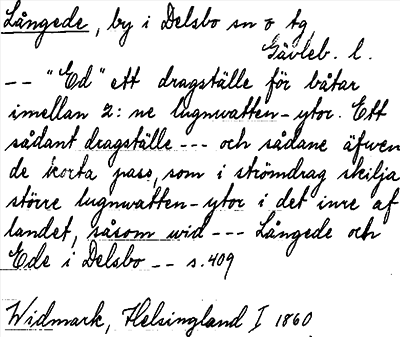 Långede, by i Delsbo sn o tg,
Gävleb. l.
-- "Ed" ett dragställe för båtar
imellan 2: ne lugnwatten-ytor. Ett
sådant dragställe --- och sådane äfwen
de korta pass, som i strömdrag skilja
större lugnwatten-ytor i det inre af
landet, såsom wid --- Långede och
Ede i Delsbo -- s. 409
Widmark, Helsingland I 1860